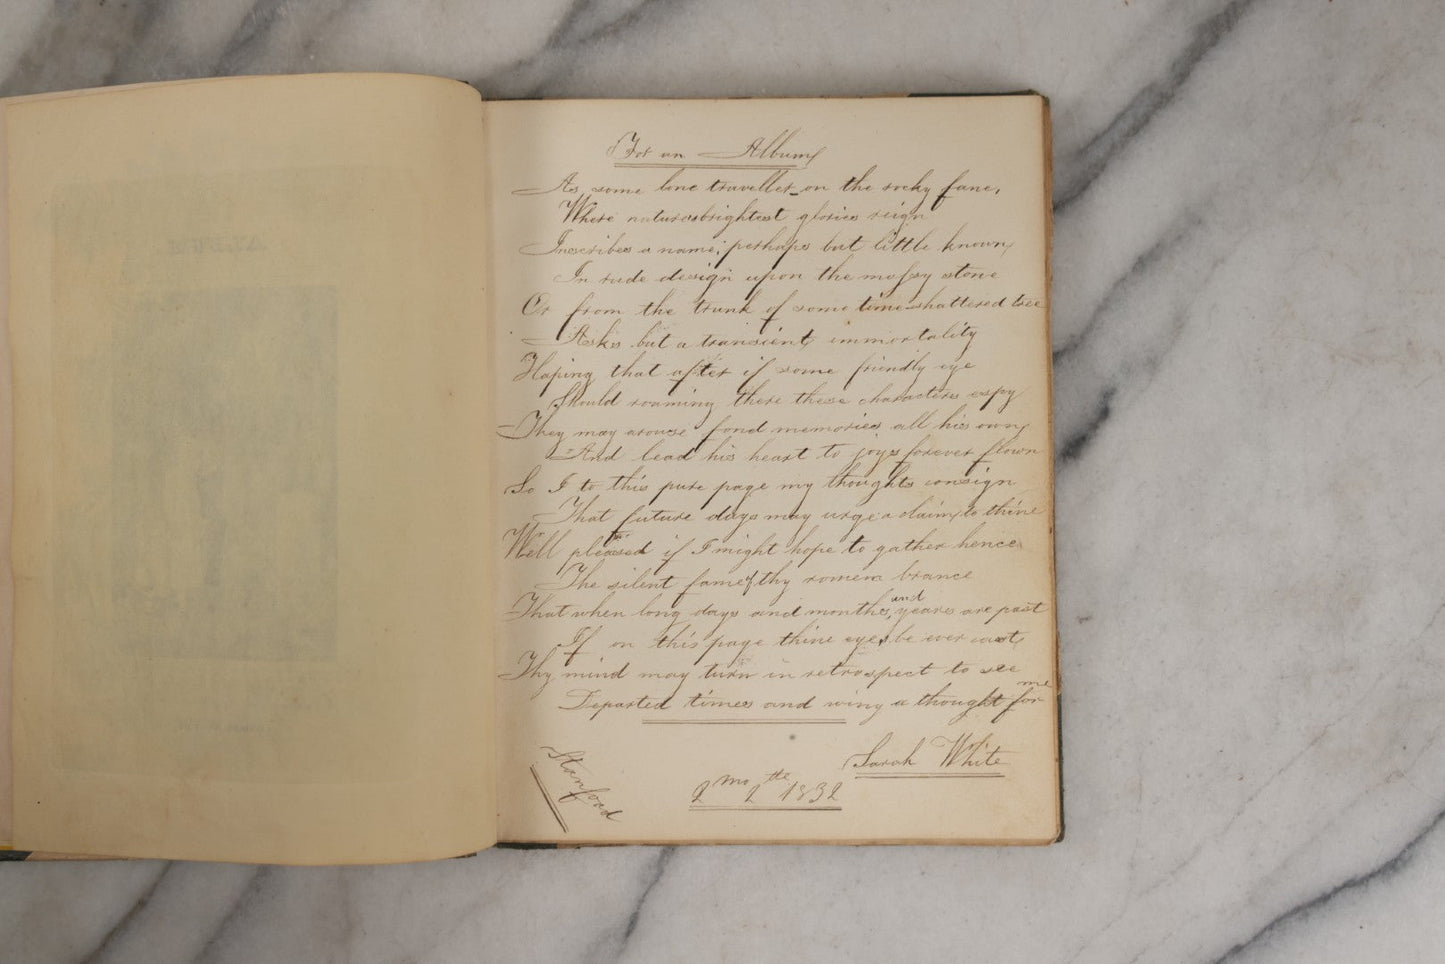 For an Album
As some lone traveller on the rocky fane,
Where natures brightest glories reign
Inscribes a name; perhaps but little known,
In rude design upon the mossy stone
Or from the trunk of some time shattered tree
Asks but a transient immortality
Hoping that after if some friendly eye
Should roaming there these characters espy
They may arouse fond memories all his own,
And lead his heart to joys forever flown
So I to this pure page my thoughts consign
That future days may urge a claim to thine
Well pleased if I might hope to gather hence
The silent fame of thy remem brance
That when long days and months, and years are past
If on this page thine eyes be ever cast,
Thy mind may turn in retrospect to see
Departed times and wing a thought for me
Sarah White
Stanford
2 mo 2 tte 1832
ALBUM